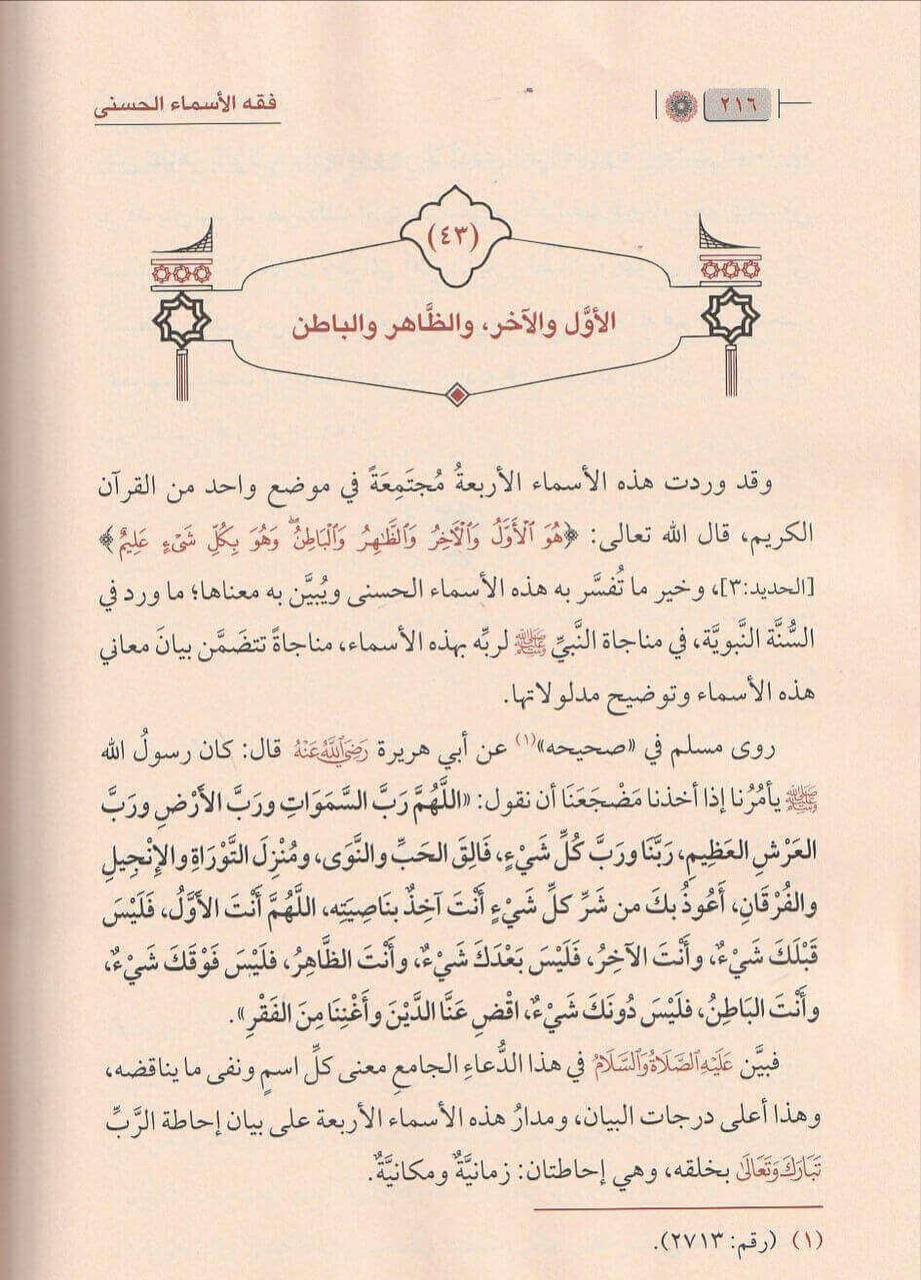 ٢١٦
فقه الأسماء الحسنى
(٤٣)
الأوَّل والآخر، والظَّاهر والباطن
وقد وردت هذه الأسماء الأربعةُ مُجتَمِعَةً في موضع واحد من القرآن
الكريم، قال الله تعالى: ﴿هُوَ ٱلْأَوَّلُ وَٱلْآخِرُ وَٱلظَّٰهِرُ وَٱلْبَاطِنُ ۖ وَهُوَ بِكُلِّ شَىْءٍ عَلِيمٌ﴾
[الحديد:٣]، وخير ما تُفسَّر به هذه الأسماء الحسنى ويُبيَّن به معناها؛ ما ورد في
السُّنَّة النَّبويَّة، في مناجاة النَّبيِّ ﷺ لربِّه بهذه الأسماء، مناجاةً تتضَمَّن بيانَ معاني
هذه الأسماء وتوضيح مدلولاتها.
روى مسلم في «صحيحه»(١) عن أبي هريرة رَضِيَ ٱللَّهُ عَنْهُ قال: كان رسولُ الله
ﷺ يأمُرُنا إذا أخذنا مَضْجَعَنَا أن نقول: «اللَّهُمَّ رَبَّ السَّمَوَاتِ ورَبَّ الأَرْضِ ورَبَّ
العَرْشِ العَظِيمِ، رَبَّنَا ورَبَّ كُلِّ شَيْءٍ، فَالِقَ الحَبِّ والنَّوَى، ومُنْزِلَ التَّوْرَاةِ والإِنْجِيلِ
والفُرْقَانِ، أَعُوذُ بكَ من شَرِّ كلِّ شَيْءٍ أَنْتَ آخِذٌ بنَاصِيَتِه، اللَّهُمَّ أَنْتَ الأَوَّلُ، فَلَيْسَ
قَبْلَكَ شَيْءٌ، وأَنْتَ الآخِرُ، فَلَيْسَ بَعْدَكَ شَيْءٌ، وأَنْتَ الظَّاهِرُ، فلَيْسَ فَوْقَكَ شَيْءٌ،
وأَنْتَ البَاطِنُ، فلَيْسَ دُونَكَ شَيْءٌ، اقْضِ عَنَّا الدَّيْنَ وأَغْنِنَا مِنَ الفَقْرِ».
فبيَّن عَلَيْهِ ٱلصَّلَاةُ وَٱلسَّلَامُ في هذا الدُّعاءِ الجامعِ معنى كلِّ اسمٍ ونفى ما يناقضه،
وهذا أعلى درجات البيان، ومدارُ هذه الأسماء الأربعة على بيان إحاطة الرَّبِّ
تَبَارَكَ وَتَعَالَىٰ بخلقه، وهي إحاطتان: زمانيَّةٌ ومكانيَّةٌ.
(١) (رقم: ٢٧١٣).